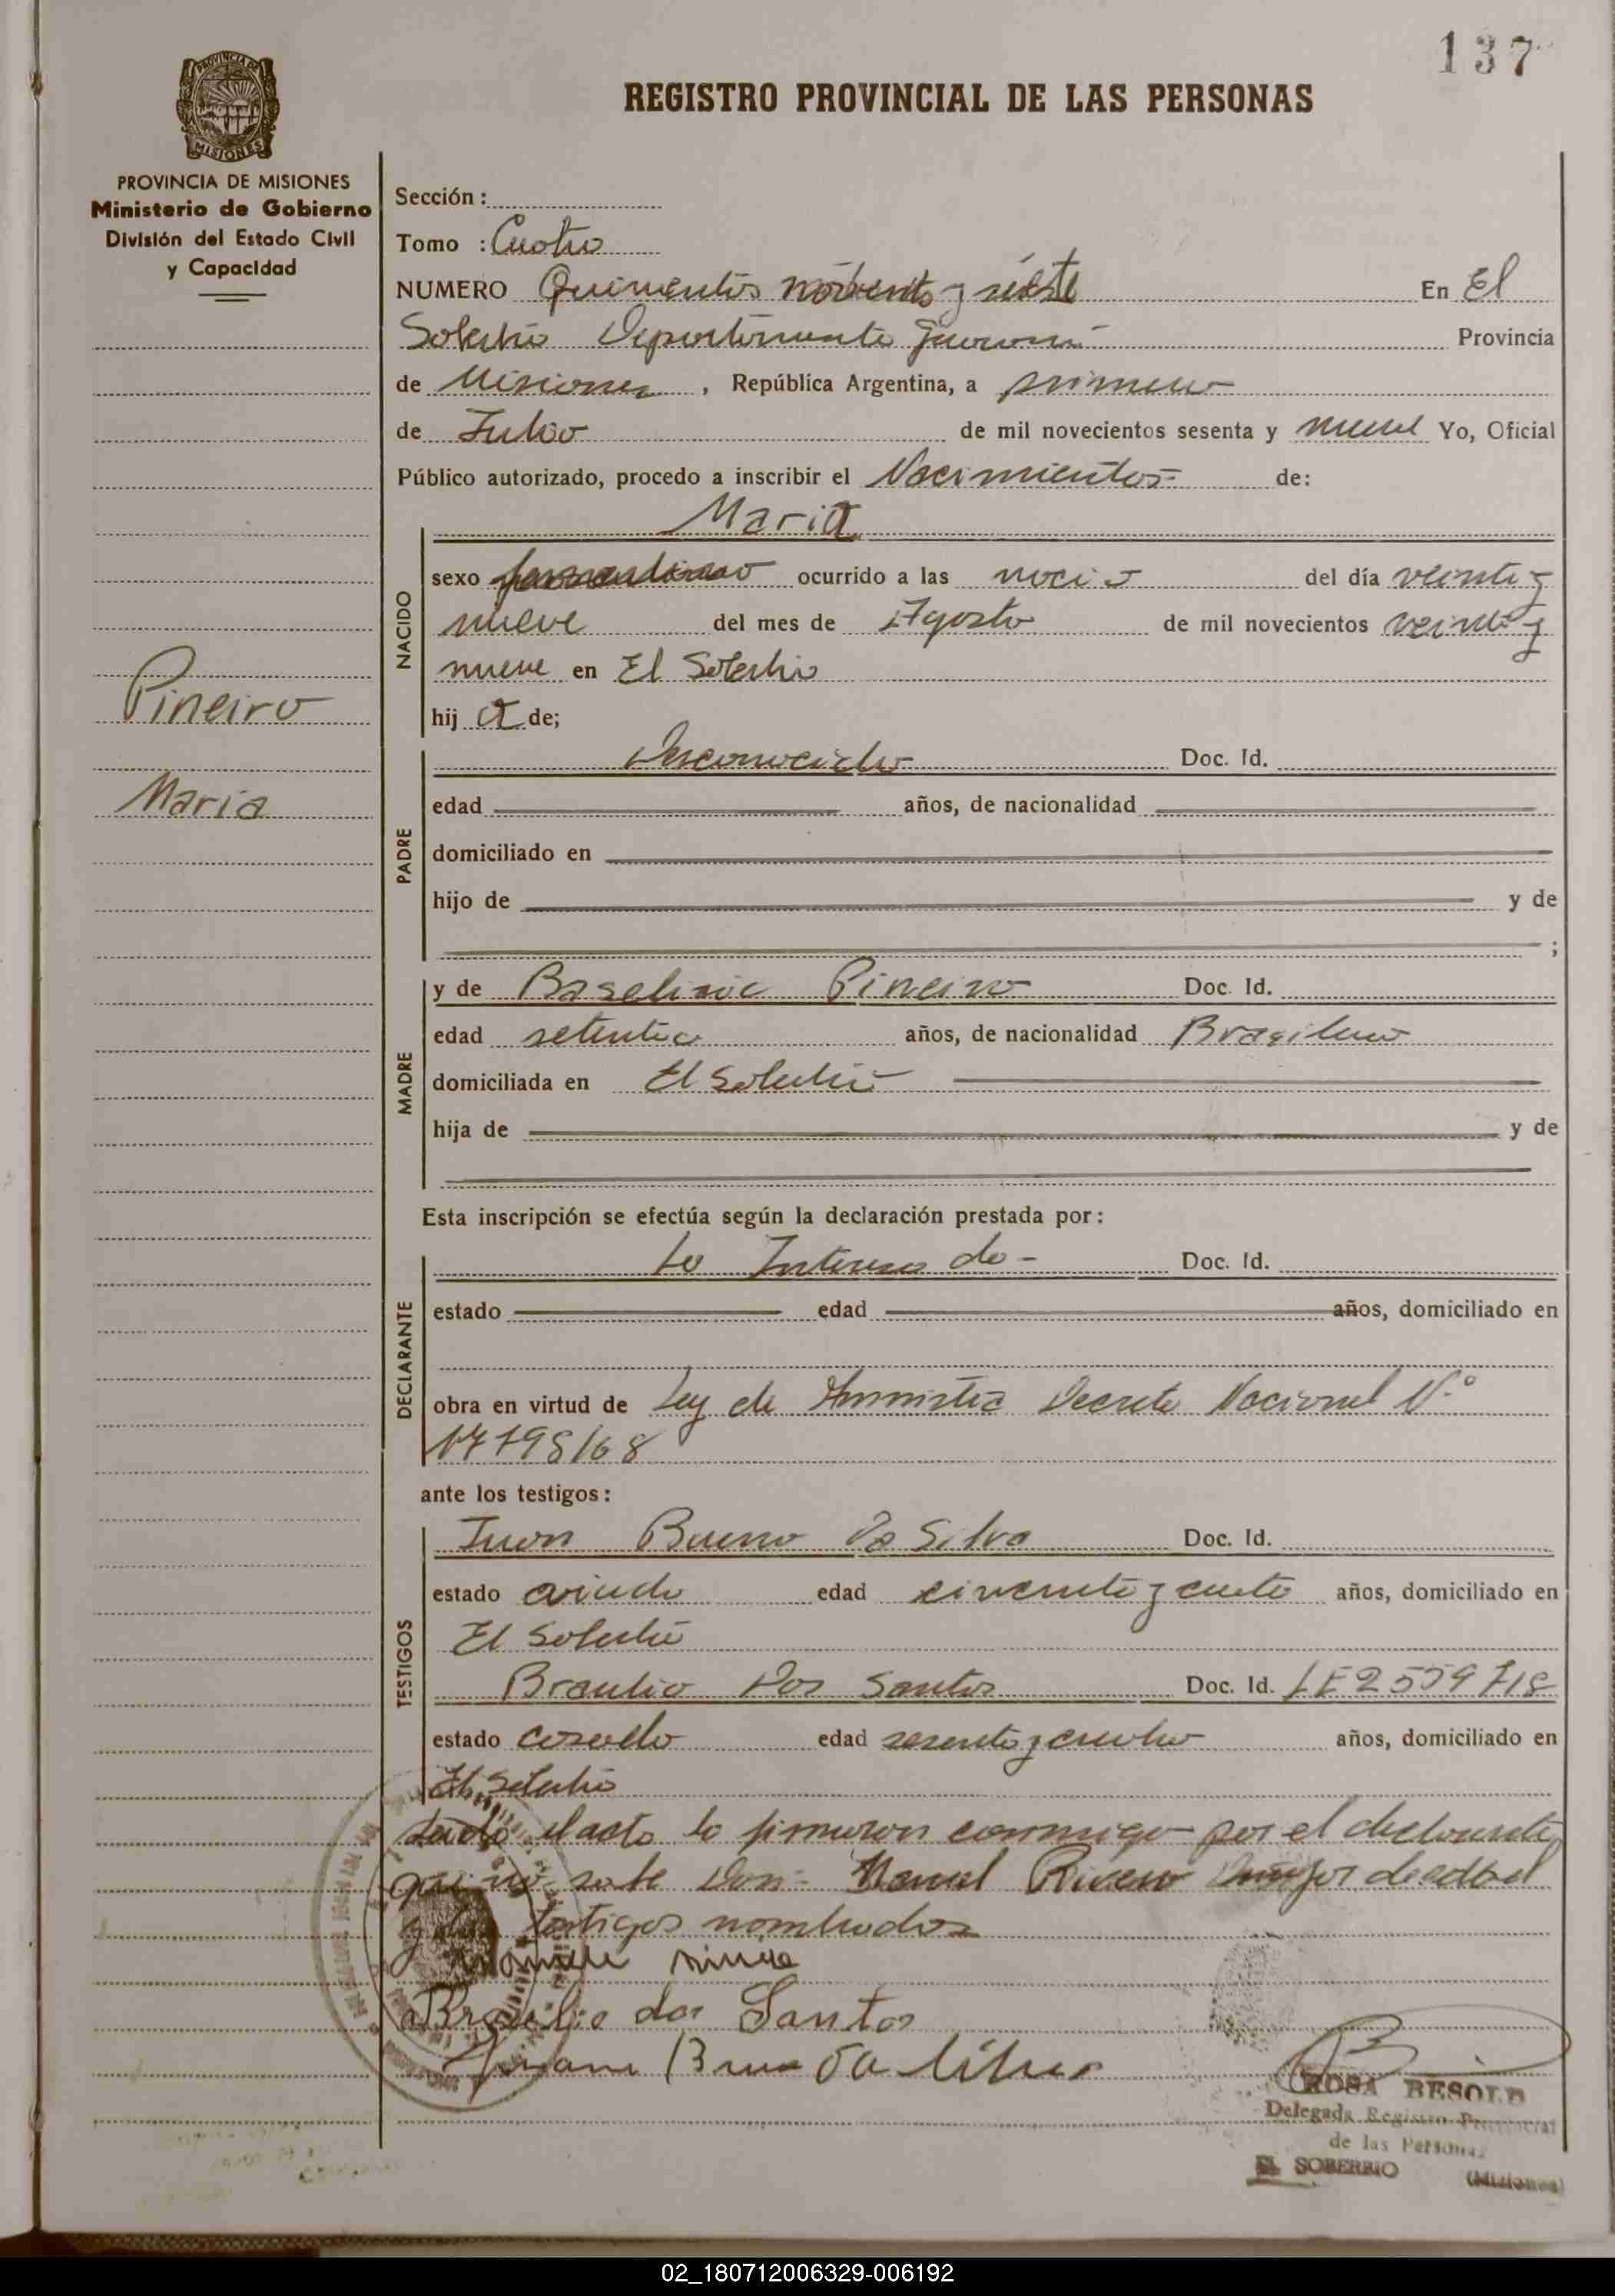 137
REGISTRO PROVINCIAL DE LAS PERSONAS
PROVINCIA DE MISIONES
PROVINCIA DE MISIONES
Ministerio de Gobierno
División del Estado Civil
y Capacidad
Pineiro
Maria
Sección :
Tomo : Cuatro
NUMERO Quinientos noventa y siete En El
Soberbio Departamento Guarani Provincia
de Misiones , República Argentina, a primero
de Julio de mil novecientos sesenta y nueve Yo, Oficial
Público autorizado, procedo a inscribir el Nacimientos de:
Maria
NACIDO
sexo ocurrido a las del día veinte y
nueve del mes de Agosto de mil novecientos veinte y
nueve en El Soberbio
hij a de;
PADRE
Desconocido Doc. Id.
edad años, de nacionalidad
domiciliado en
hijo de y de
;
MADRE
y de Pineiro Doc. Id.
edad setenta años, de nacionalidad Brasilera
domiciliada en El Soberbio
hija de y de
Esta inscripción se efectúa según la declaración prestada por:
DECLARANTE
La Interesada Doc. Id.
estado edad años, domiciliado en
obra en virtud de Ley de Amnistia Decreto Nacional N.°
17798/68
ante los testigos:
TESTIGOS
Juan Bueno Da Silva Doc. Id.
estado viudo edad años, domiciliado en
El Soberbio
Braulio Dos Santos Doc. Id. LE 2559718
estado casado edad años, domiciliado en
El Soberbio
Leido el acto lo firmaron conmigo por el declarante
que no sabe Don Manuel mayor de edad
y los testigos nombrados
Braulio dos Santos
ROSA BESOLD
Delegada Registro Provincial
de las Personas
EL SOBERBIO (Misiones)
02_180712006329-006192